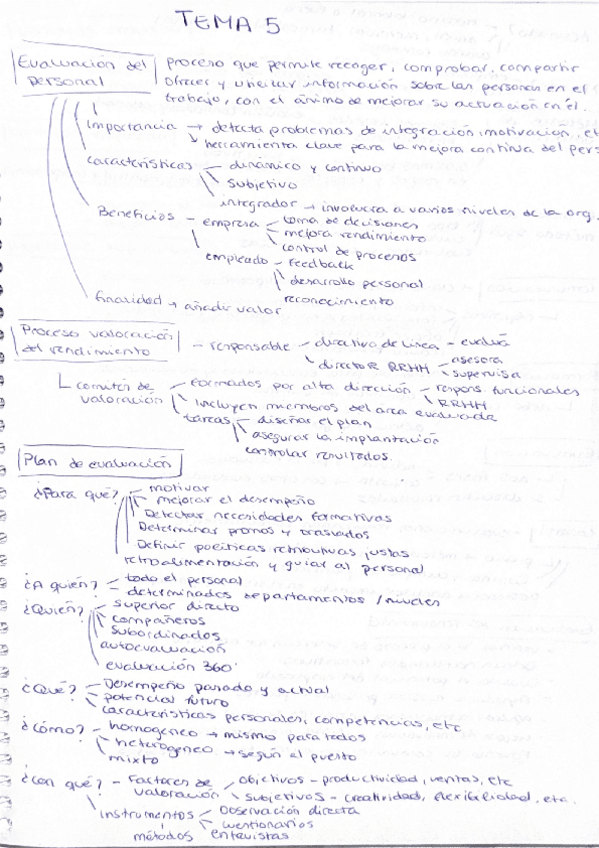 TEMA 5
Evaluación del personal
proceso que permite recoger, comprobar, compartir
ofrecer y utilizar información sobre las personas en el
trabajo, con el ánimo de mejorar su actuación en él.
Importancia → detecta problemas de integración, motivación, et
↳ herramienta clave para la mejora continua del pers
Características - dinámico y continuo
subjetivo
integrador → involucra a varios niveles de la org.
Beneficios - empresa - toma de decisiones
mejora rendimiento
control de procesos
empleado - Feedback
desarrollo personal
reconocimiento
finalidad → añadir valor
Proceso valoración del rendimiento
- responsable - directivo de línea - evalúa
directoR RRHH - asesora
supervisa
comités de valoración - Formados por alta dirección - respons. funcionales
RRHH
Incluyen miembros del area evaluada
tareas - diseñar el plan
asegurar la implantación
controlar resultados.
Plan de evaluación
¿Para qué? - motivar
mejorar el desempeño
Detectar necesidades formativas
Determinar promos y traslados
Definir políticas retributivas justas
retroalimentación y guiar al personal
¿A quién? - todo el personal
- determinados departamentos / niveles
¿Quién? - superior directo
compañeros
subordinados
autoevaluación
evaluación 360°
¿Qué? - Desempeño pasado y actual
potencial futuro
características personales, competencias, etc
¿Cómo? - homogeneo → mismo para todos
heterogeneo → según el puesto
mixto
¿Con qué? - Factores de valoración - objetivos - productividad, ventas, etc
subjetivos - creatividad, flexibilidad, etc.
Instrumentos - Observación directa
cuestionarios
métodos entrevistas